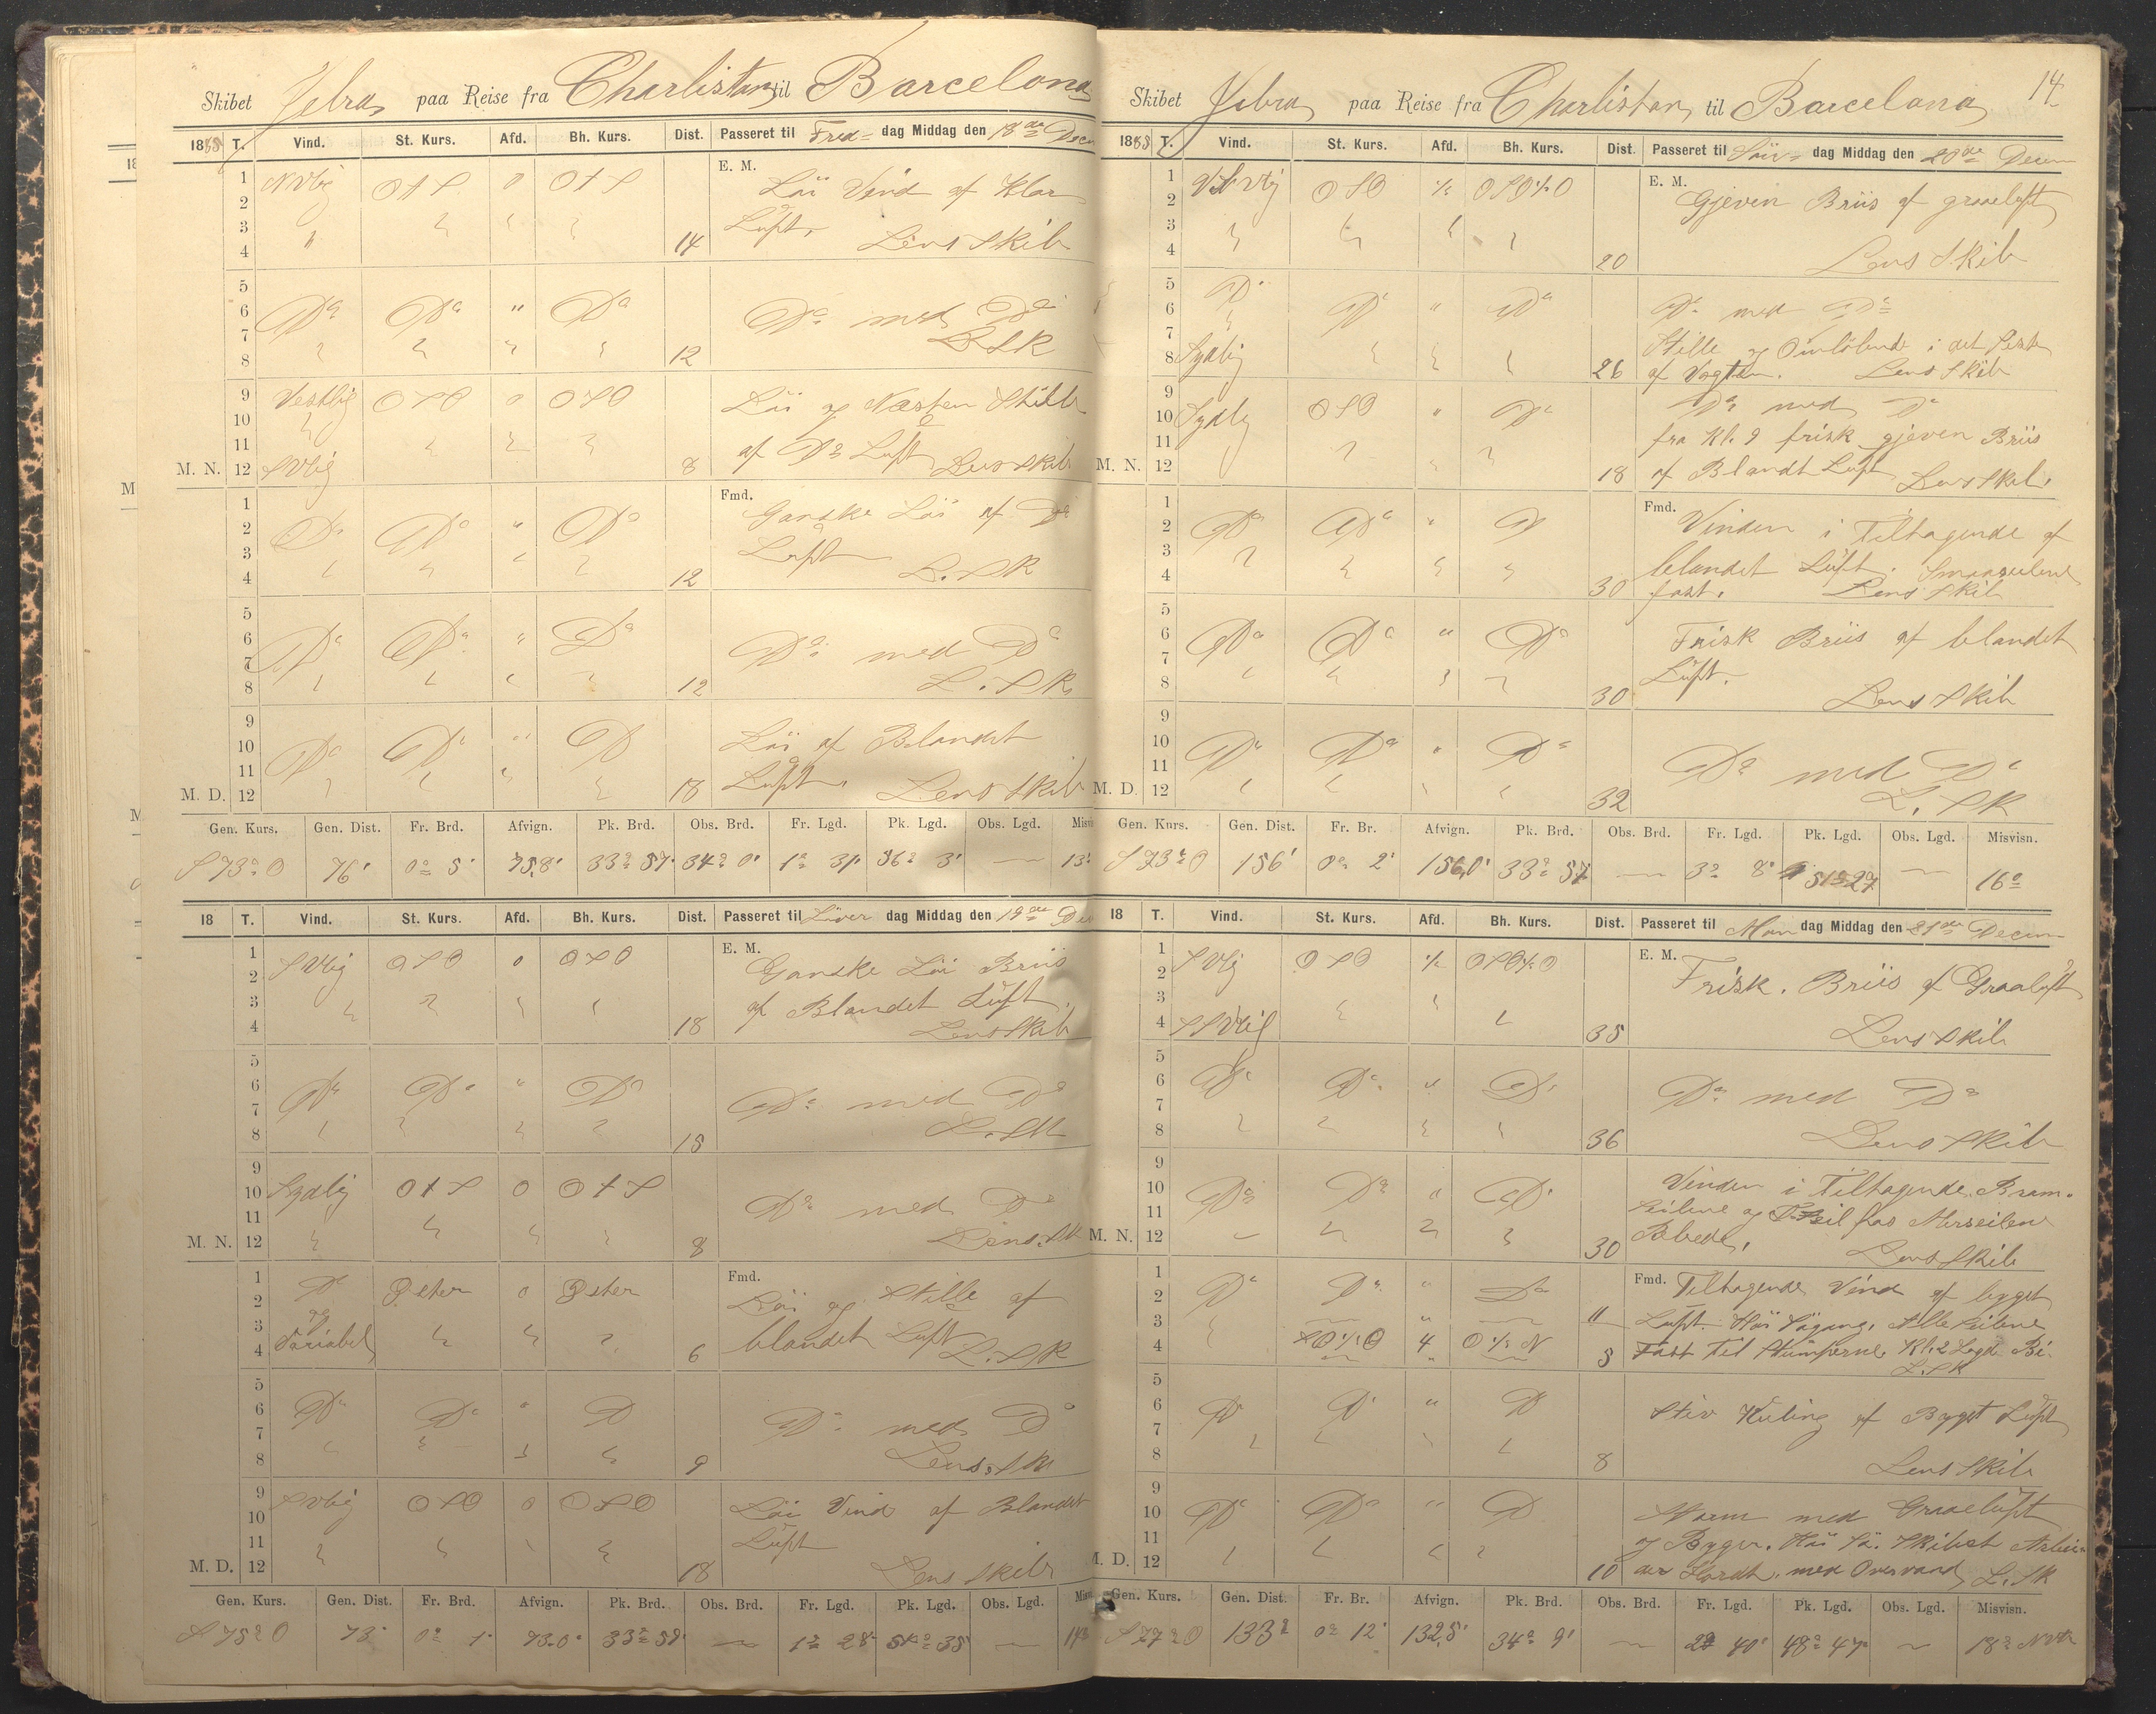 Skibet paa Reise fra Charlistan til Barcelona
18 T. Vind. St. Kurs. Afd. Bh. Kurs. Dist. Passeret til Fre dag Middag den 18de Decem
E. M.
1 NVlig OtS 0 OtS Löi Vind af Klar
2
3 Luft.
4 14 Lens Skib
5
6 Do Do " Do Do med Do
7 L SK
8 12
9 Vestlig OSO 0 OSO Löi og Næsten Stille
10
11 af Do Luft Lens Skib
M. N. 12 SVlig 8
Fmd.
1 Ganske Löi af Do
2 Do Do " Do
3 Luft
4 12 L. SK
5
6 Do Do " Do Do med Do
7
8 12 L. SK
9
10 Do Do " Do Löi af Blandet
11 Luft.
M. D. 12 18 Lens Skib
Gen. Kurs. Gen. Dist. Fr. Brd. Afvign. Pk. Brd. Obs. Brd. Fr. Lgd. Pk. Lgd. Obs. Lgd.
S 73° O 76' 0° 5' 75,8' 33° 57' 34° 0' 1° 31' 56° 3' — 13°
18 T. Vind. St. Kurs. Afd. Bh. Kurs. Dist. Passeret til Löver dag Middag den 19de Dec
E. M.
1 SVlig OSO 0 OSO Ganske Löi Briis
2
3 af Blandet Luft.
4 18 Lens Skib
5
6 Do Do " Do Do med Do
7 L. SK
8 15
9
10 Sydlig OtS 0 OtS Do med Do
11
M. N. 12 8 Lens. SK
Fmd.
1 Do Öster 0 Öster Löi og Stille af
2 og
3 Variabel blandet Luft
4 6 L. SK
5
6 Do Do " Do Do med Do
7
8 9 Lens. SK
9 SVlig OSO 0 OSO Löi Vind af Blandet
10
11 Luft
M. D. 12 18 Lens Skib
Gen. Kurs. Gen. Dist. Fr. Brd. Afvign. Pk. Brd. Obs. Brd. Fr. Lgd. Pk. Lgd. Obs. Lgd.
S 75° O 73' 0° 1' 73.0' 33° 58' — 1° 28' 54° 35' —
14
Skibet paa Reise fra Charlistan til Barcelona
18 T. Vind. St. Kurs. Afd. Bh. Kurs. Dist. Passeret til Sön dag Middag den 20de Decem
E. M.
1 VSVlig OSO ½ OSO½O Gjeven Briis af graaeluft
2
3
4 20 Lens Skib
5 Do
6 Do " Do Do med Do
7 Stille og Omlöbende i det Sidste
8 Sydlig 26 af Vagten. Lens Skib
9 Do med Do
10 Sydlig OSO " Do fra Kl. 9 frisk gjeven Briis
11
M. N. 12 18 af Blandt Luft Lens Skib.
Fmd.
1 Vinden i Tiltagende af
2 Do Do " Do
3 blandet Luft. Smaaseilene
4 30 fast. Lens Skib
5
6 Do Do " Do Frisk Briis af blandet
7 Luft.
8 30 Lens Skib
9
10 Do Do " Do
11 Do med Do
M. D. 12 32 L. SK
Gen. Kurs. Gen. Dist. Fr. Br. Afvign. Pk. Brd. Obs. Brd. Fr. Lgd. Pk. Lgd. Obs. Lgd. Misvisn.
S 73° O 156' 0° 2' 156,0' 33° 57' — 3° 8' 51° 27' — 16°
18 T. Vind. St. Kurs. Afd. Bh. Kurs. Dist. Passeret til Man dag Middag den 21de Decem
E. M.
1 SVlig OSO ½ OSO½O Frisk. Briis af Graaluft
2
3
4 SSVlig 35 Lens Skib
5
6 Do Do " Do Do med Do
7
8 36 Lens Skib
9
10 Do Do " Do Vinden i Tiltagende. Bram-
11 seilene og
M. N. 12 30 Lens Skib
1 Do Do " Do Fmd. Tiltagende Vind af bygget
2
3 11 Luft. Höi Sögang. Alle Seilene
4 4 O½N 8 Fast Til Stumperne. Kl. 2 Lagde Bi.
L. SK
5
6 Do Do " Do Stiv Kuling af Bygget Luft
7
8 8 Lens Skib
9
10 Do Do " Do Storm med Graaeluft
11 og Byger. Höi Sö. Skibet Arbei-
M. D. 12 10 der Hardt med Overvand L. SK
Gen. Kurs. Gen. Dist. Fr. Br. Afvign. Pk. Brd. Obs. Brd. Fr. Lgd. Pk. Lgd. Obs. Lgd. Misvisn.
S 77° O 133' 0° 12' 132,5' 34° 9' — 2° 40' 48° 47' — 18°